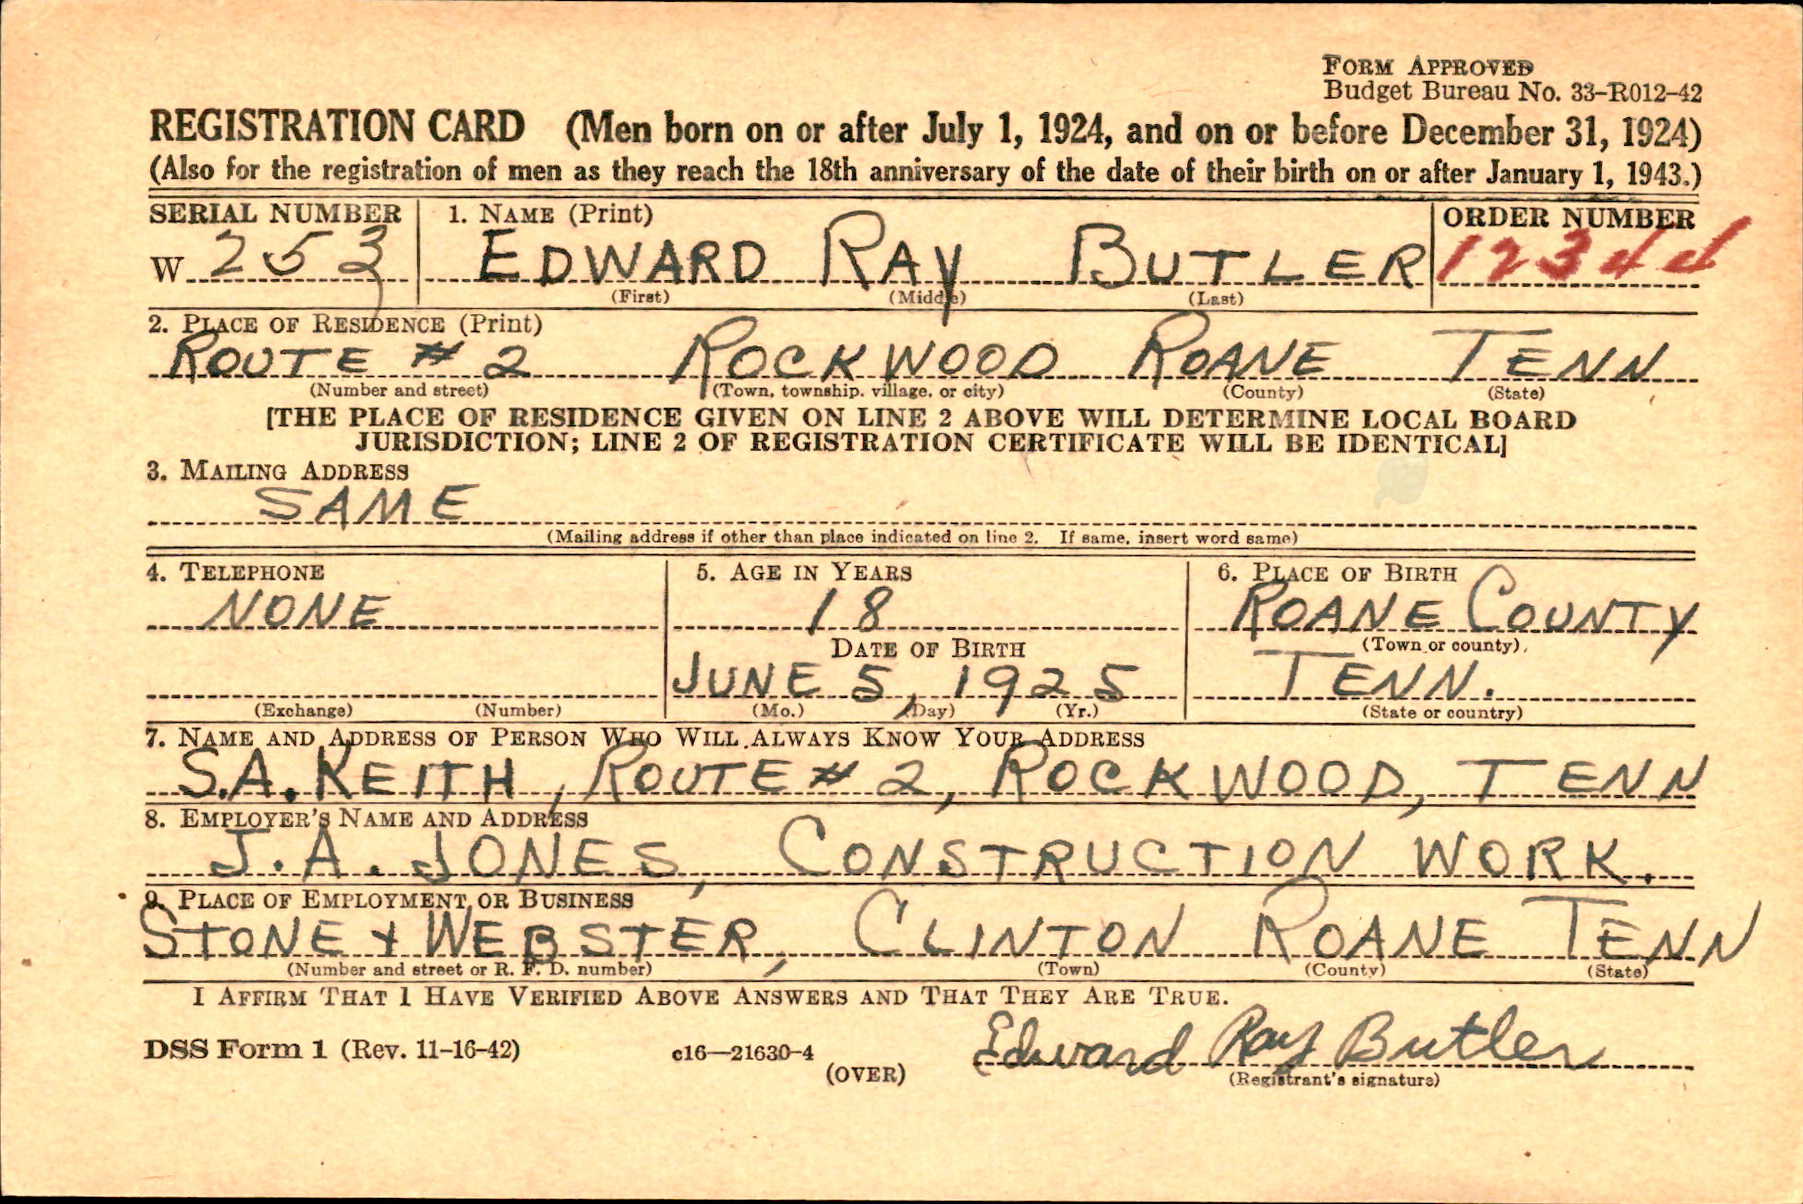 FORM APPROVED
Budget Bureau No. 33-R012-42
REGISTRATION CARD (Men born on or after July 1, 1924, and on or before December 31, 1924)
(Also for the registration of men as they reach the 18th anniversary of the date of their birth on or after January 1, 1943.)
SERIAL NUMBER 1. NAME (Print) ORDER NUMBER
W 253 EDWARD RAY BUTLER 12344
(First) (Middle) (Last)
2. PLACE OF RESIDENCE (Print)
ROUTE # 2 ROCKWOOD ROANE TENN
(Number and street) (Town, township, village, or city) (County) (State)
[THE PLACE OF RESIDENCE GIVEN ON LINE 2 ABOVE WILL DETERMINE LOCAL BOARD
JURISDICTION; LINE 2 OF REGISTRATION CERTIFICATE WILL BE IDENTICAL]
3. MAILING ADDRESS
SAME
(Mailing address if other than place indicated on line 2. If same, insert word same)
4. TELEPHONE 5. AGE IN YEARS 6. PLACE OF BIRTH
NONE 18 ROANE COUNTY
DATE OF BIRTH (Town or county)
JUNE 5, 1925 TENN.
(Exchange) (Number) (Mo.) (Day) (Yr.) (State or country)
7. NAME AND ADDRESS OF PERSON WHO WILL ALWAYS KNOW YOUR ADDRESS
S.A. KEITH, ROUTE # 2, ROCKWOOD, TENN
8. EMPLOYER'S NAME AND ADDRESS
J. A. JONES, CONSTRUCTION WORK.
9. PLACE OF EMPLOYMENT OR BUSINESS
STONE & WEBSTER, CLINTON ROANE TENN
(Number and street or R. F. D. number) (Town) (County) (State)
I AFFIRM THAT I HAVE VERIFIED ABOVE ANSWERS AND THAT THEY ARE TRUE.
DSS Form 1 (Rev. 11-16-42) c16—21630-4 Edward Ray Butler
(OVER) (Registrant's signature)